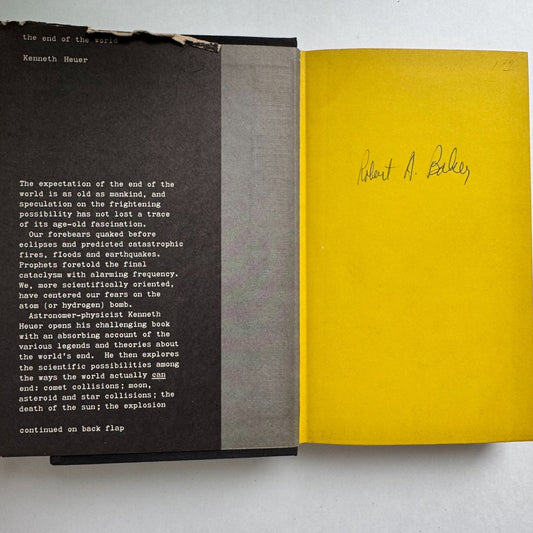 the end of the world
Kenneth Heuer
The expectation of the end of the
world is as old as mankind, and
speculation on the frightening
possibility has not lost a trace
of its age-old fascination.
Our forbears quaked before
eclipses and predicted catastrophic
fires, floods and earthquakes.
Prophets foretold the final
cataclysm with alarming frequency.
We, more scientifically oriented,
have centered our fears on the
atom (or hydrogen) bomb.
Astronomer-physicist Kenneth
Heuer opens his challenging book
with an absorbing account of the
various legends and theories about
the world's end. He then explores
the scientific possibilities among
the ways the world actually can
end: comet collisions; moon,
asteroid and star collisions; the
death of the sun; the explosion
continued on back flap
Robert A. Baker